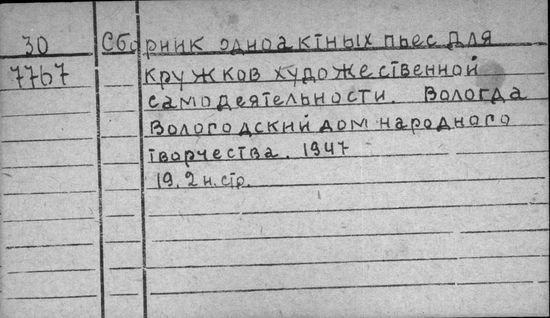 30 Сборник одноактных пьес для
7767 кружков художественной
самодеятельности. Вологда
Вологодский дом народного
творчества. 1947
19, 2 н. стр.